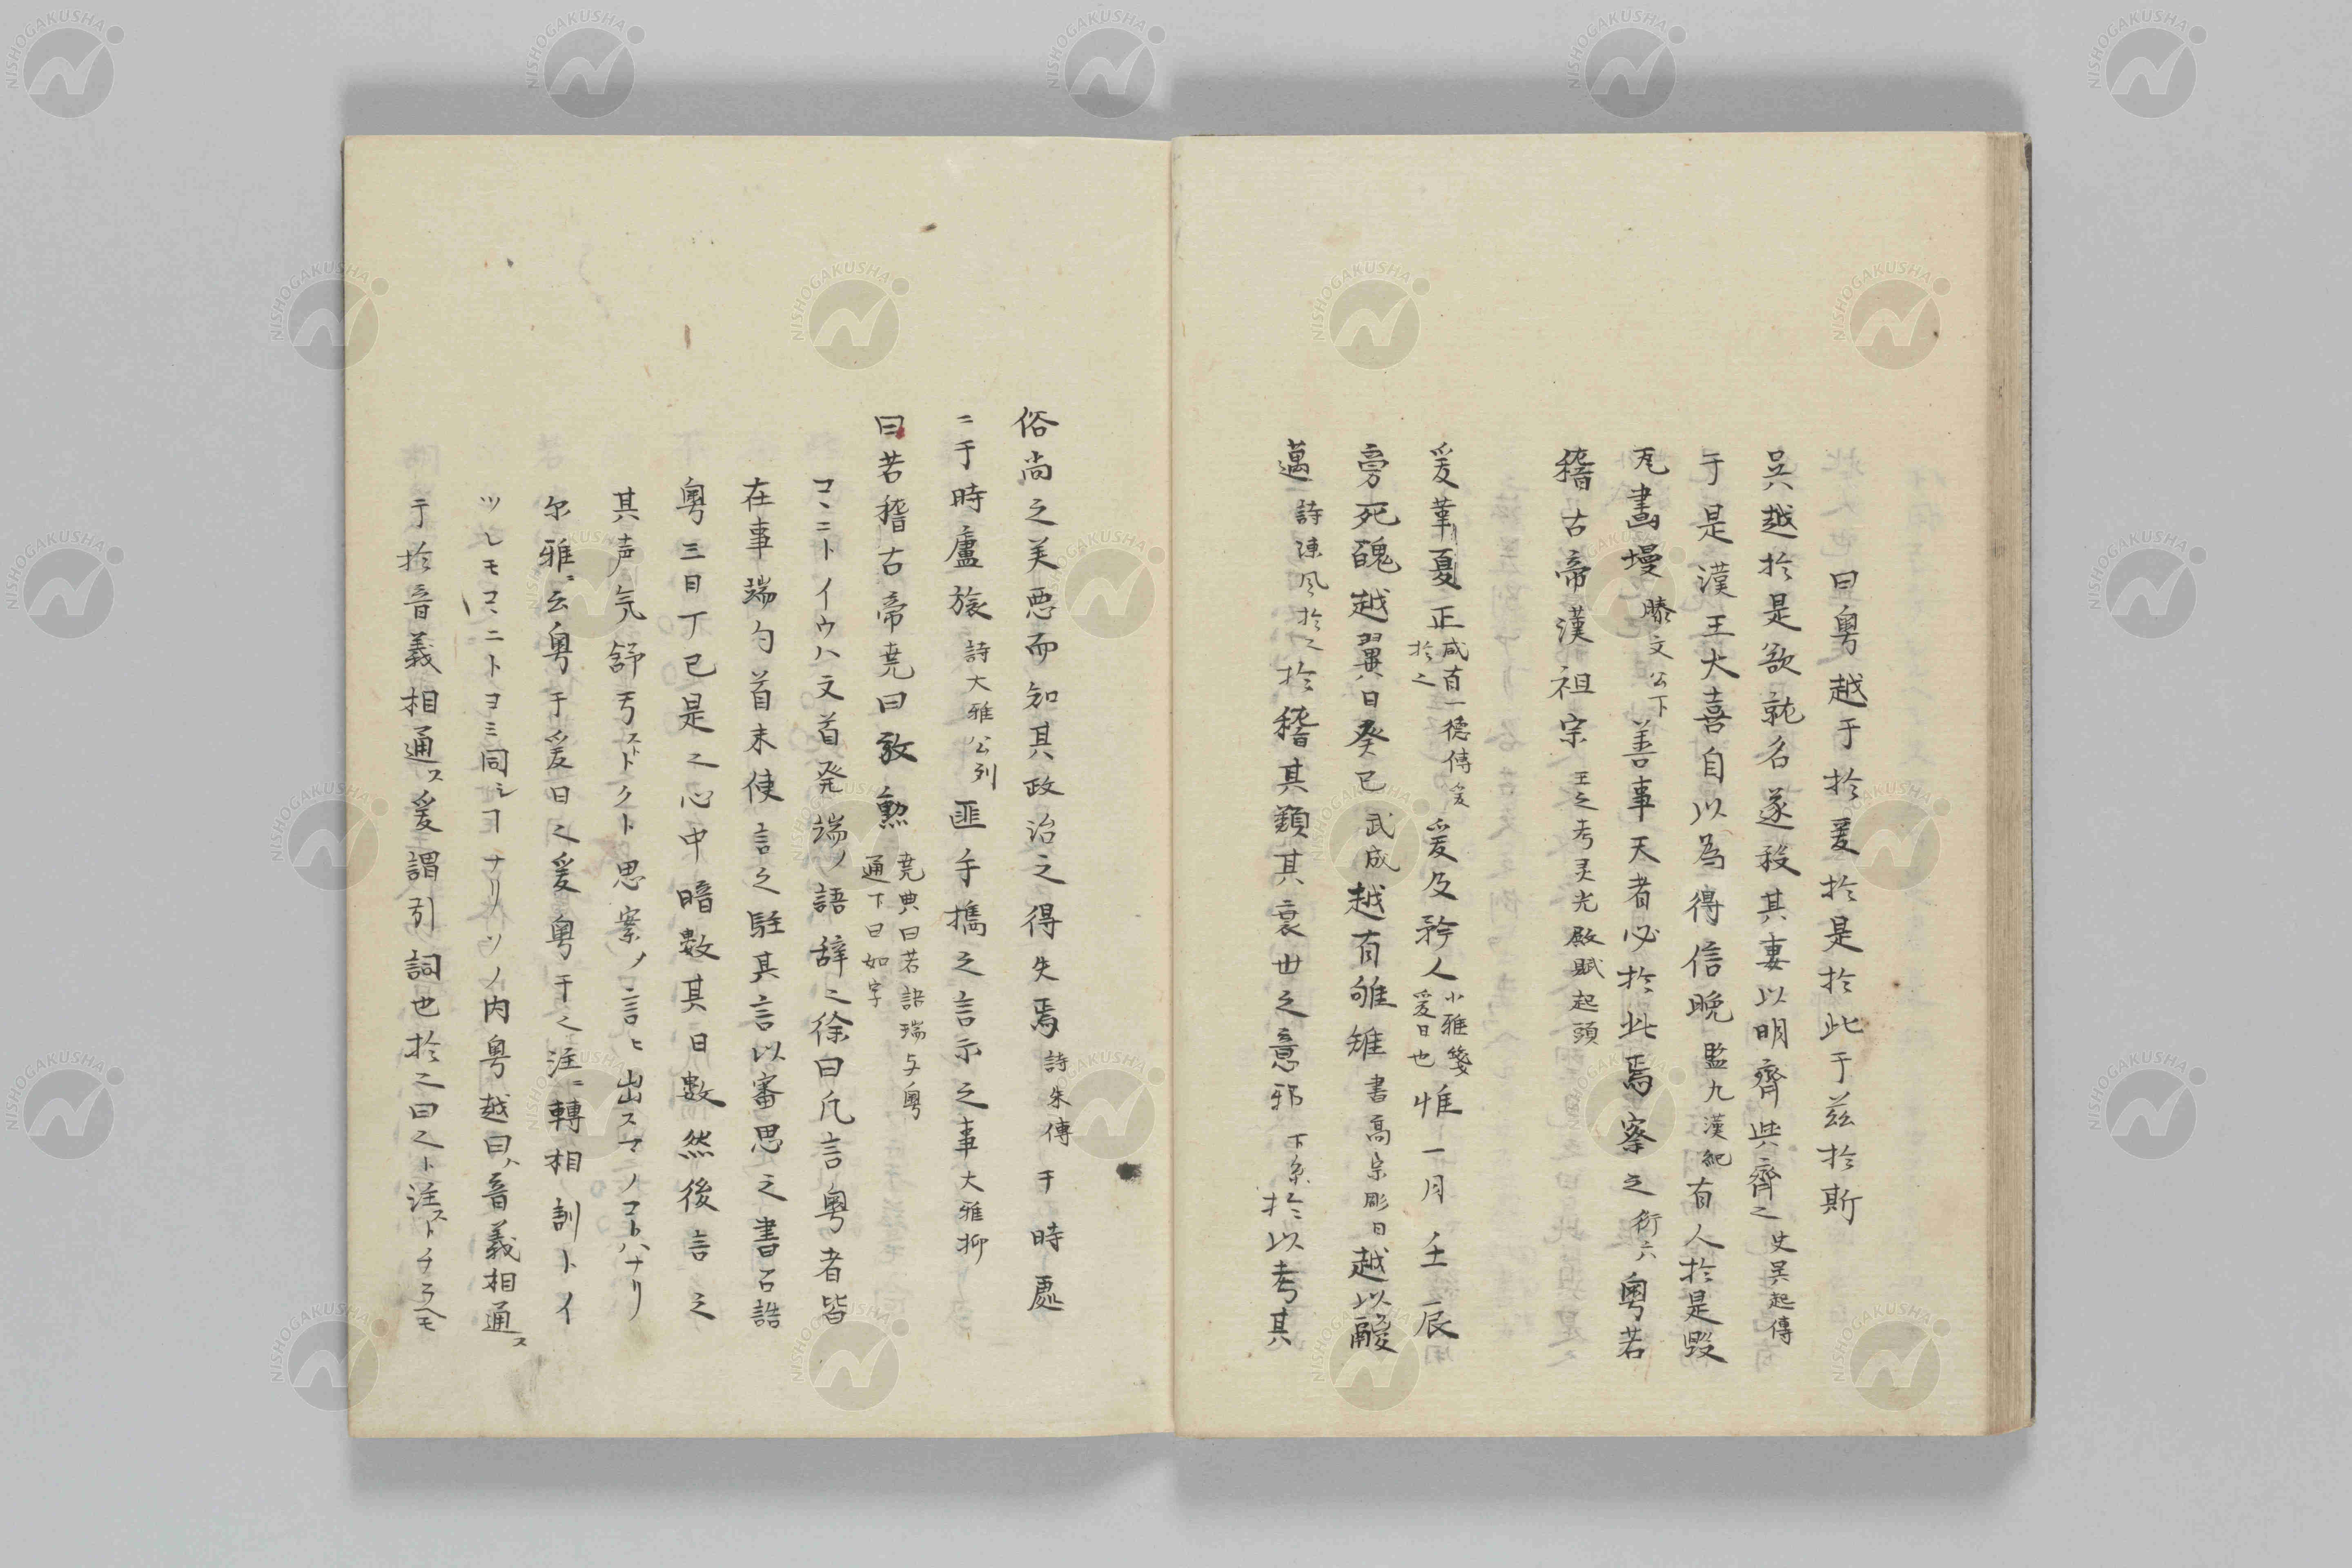 曰粤越于於爰於是於此于茲於斯
吳越於是欲就名遂殺其妻以明齊與齊之 史吳起傳
于是漢王大喜自以為得信晩 監九漢紀 有人於是毀
瓦畫墁 滕文公下 善事天者必於此焉察之 衍六 粤若
稽古帝漢祖宗 王之考灵光殿賦起頭
爰革夏正 咸有一德傳爰於之 爰及矜人 小雅箋爰曰也 惟一月壬辰
旁死魄越翼日癸巳 武成 越有雊雉 書高宗彫日 越以鬷
邁 詩陳風於之 於稽其類其衰世之意邪 下系 於以考其
俗尚之美悪而知其政治之得失焉 詩朱傳 于時處
ニ于時盧旅 詩大雅公列 匪手攜之言示之事 大雅抑
曰若稽古帝堯曰放勲 堯典曰若 与粤通下曰如字
コヽニトイウハ文首発端ノ語辞ニ徐曰凡言粤者皆
在事端句首未使言之駐其言以審思之書召誥
粤三日丁巳是之心中暗數其日數然後言之
其声気舒亐ストトクト思案ノ言ヒ出スマエノコトハナリ
尓雅ニ云粤于爰曰之爰粤于之注ニ轉相訓トイ
ツレモコヽニトヨミ同シヿナリソノ内粤越曰ハ音義相通ス
于於音義相通ス爰謂引詞也於之曰之ト注ストイヘトモ